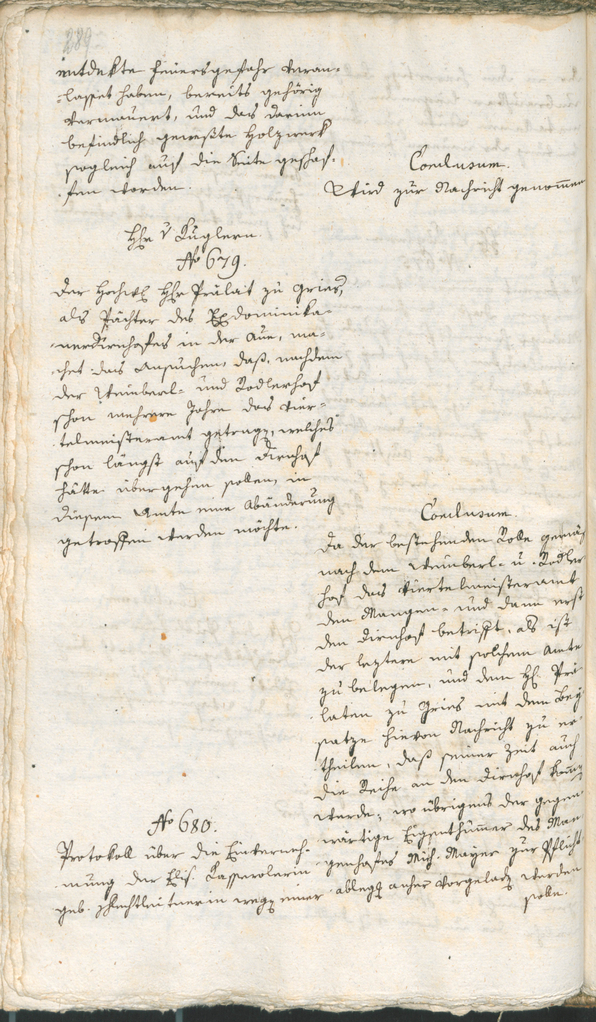 289
entdekte Feuersgefahr veran-
lasset haben, bereits gehörig
vermauert, und das darinn
befindlich geweßte Holzwerk
sogleich auf die Seite geschaf-
fen worden.
Conclusum.
Wird zur Nachricht genommen
Hr v Kuglern.
No 679.
Der Hochw Hr Prälat zu Gries,
als Pächter des Exdominika-
nerdirnhofes in der Aue, ma-
chet das Ansuchen, daß, nachdem
der Steinberl- und Rodlerhof
schon mehrere Jahre das Vier-
telmeisteramt getragen, welches
schon längst auf den Dirnhof
hätte übergehen sollen, in
diesem Amte eine Abänderung
getroffen werden möchte.
Conclusum.
Da der bestehenden Rolle gemäß
nach dem Steinberl- u. Rodler-
hof das Viertelmeisteramt
den Mangen- und dann erst
den Dirnhof betrifft, als ist
der leztere mit solchem Amte
zu belegen, und dem H. Prä-
laten zu Gries mit dem Bey-
satze hievon Nachricht zu er-
theilen, daß seiner Zeit auch
die Reihe an den Dirnhof kommen
werde; wo übrigens der gegen-
wärtige Eigenthümer des Man-
genhofes Mich. Mayer zur Pflicht
ablegg anher vorgeladen werden
solle.
No 680.
Protokoll über die Einverneh-
mung der Elis.
geb. wegen einer